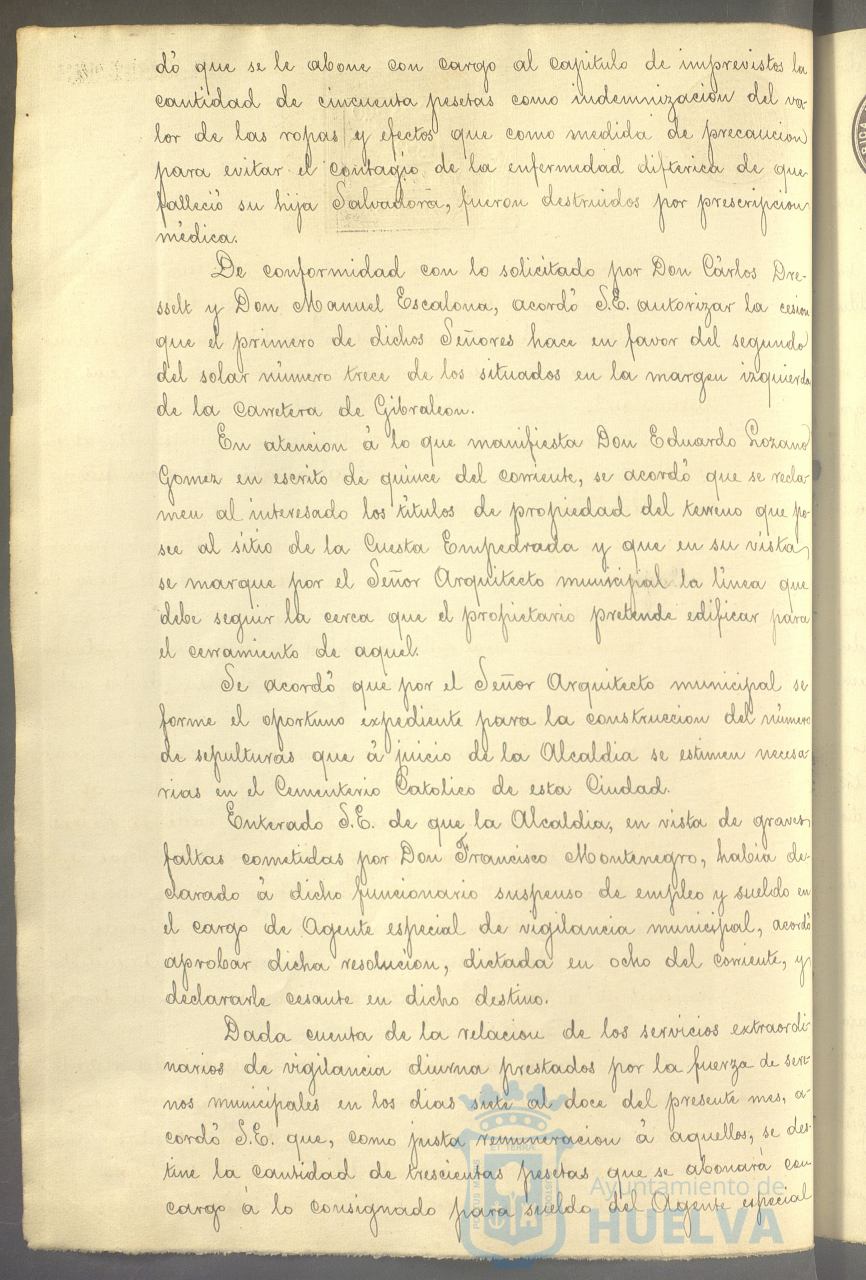 dó que se le abone con cargo al capitulo de imprevistos la
cantidad de cincuenta pesetas como indemnizacion del va-
lor de las ropas y efectos que como medida de precaucion
para evitar el contagio de la enfermedad diftérica de que
falleció su hija Salvadora, fueron destruidos por prescripcion
médica.
De conformidad con lo solicitado por Don Cárlos Dre-
sselt y Don Manuel Escalona, acordó S.E. autorizar la cesion
que el primero de dichos Señores hace en favor del segundo
del solar número trece de los situados en la margen izquierda
de la Carretera de Gibraleon.
En atencion á lo que manifiesta Don Eduardo Lozano
Gomez en escrito de quince del corriente, se acordó que se recla-
men al interesado los títulos de propiedad del terreno que po-
see al sitio de la Cuesta Empedrada y que en su vista,
se marque por el Señor Arquitecto municipal la línea que
debe seguir la cerca que el propietario pretende edificar para
el cerramiento de aquel.
Se acordó que por el Señor Arquitecto municipal se
forme el oportuno expediente para la construccion del número
de sepulturas que á juicio de la Alcaldia se estimen necesa-
rias en el Cementerio Católico de esta Ciudad.
Enterado S.E. de que la Alcaldia, en vista de graves
faltas cometidas por Don Francisco Montenegro, habia de-
clarado á dicho funcionario suspenso de empleo y sueldo en
el cargo de Agente especial de vigilancia municipal, acordó
aprobar dicha resolucion, dictada en ocho del corriente, y
declararle cesante en dicho destino.
Dada cuenta de la relacion de los servicios extraordi-
narios de vigilancia diurna prestados por la fuerza de sere-
nos municipales en los dias siete al doce del presente mes, a-
cordó S.E. que, como justa remuneracion á aquellos, se des-
tine la cantidad de trescientas pesetas que se abonará con
cargo á lo consignado para sueldo del Agente especial
Ayuntamiento de
HUELVA